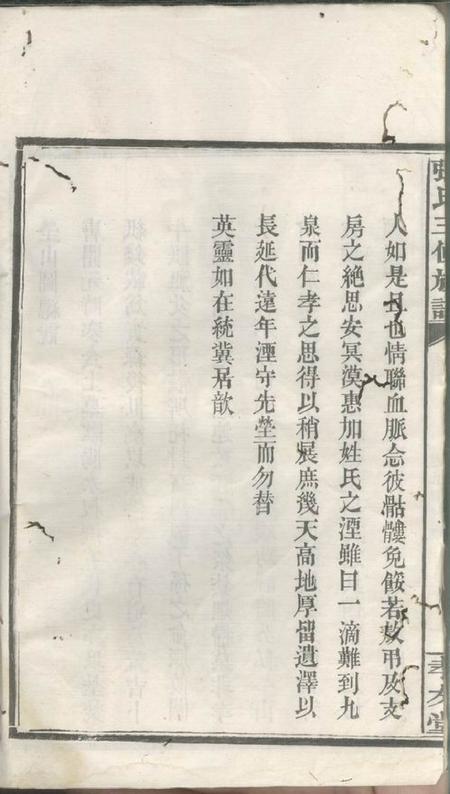 張氏三修族譜
人如是且也情聯血脈念彼骷髏免餒若敖弔及支
房之絕思安冥漠惠加姓氏之湮雖曰一滴難到九
泉而仁孝之思得以稍展庶幾天高地厚留遺澤以
長延代遠年湮守先塋而勿替
英靈如在統冀居歆
孝友堂